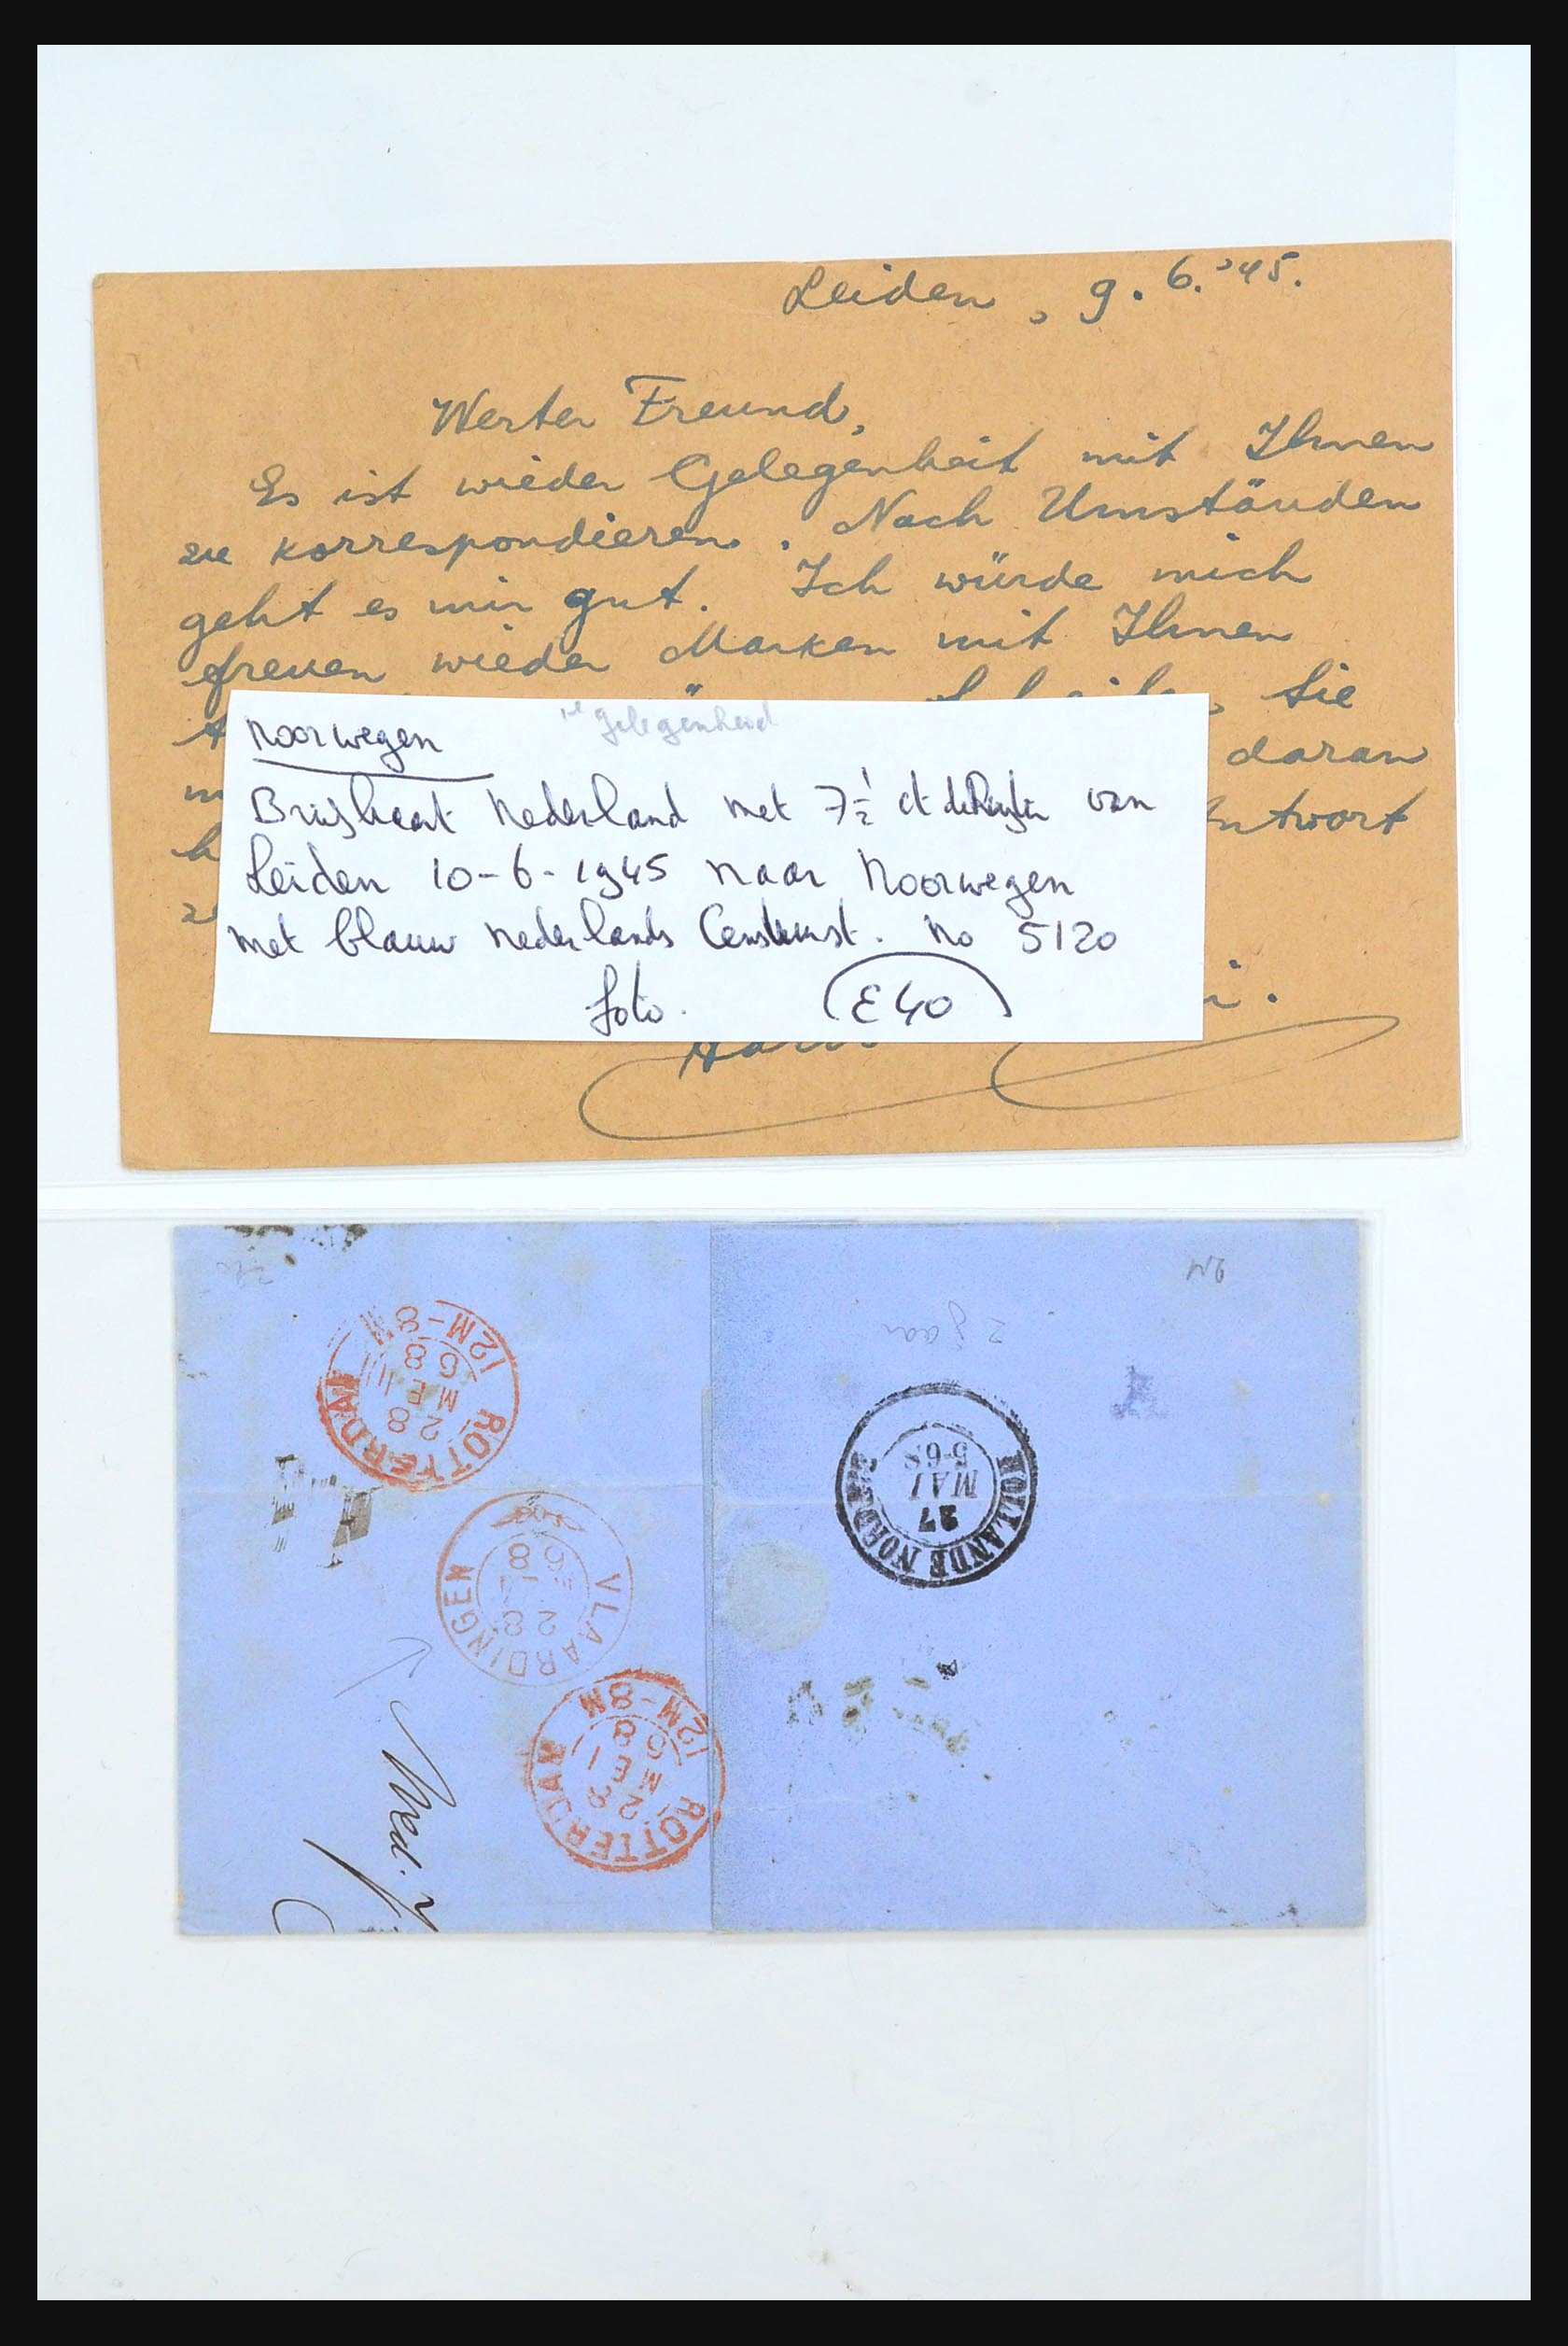 Leiden, 9.6.'45.
Werter Freund,
Es ist wieder Gelegenheit mit Ihnen
zu korrespondieren. Nach Umständen
geht es mir gut. Ich würde mich
freuen wieder Marken mit Ihnen
Sie
daran
ntwort
i.
Noorwegen
gelegenheid
Briefkaart Nederland met 7½ ct de Ruyter van
Leiden 10-6-1945 naar Noorwegen
met blauw Nederlands Censuurst. No 5120
foto.
E 40
ROTTERDAM
28 ME 68
12M-8M
VLAARDINGEN
28 68
ROTTERDAM
28 ME 68
12M-8M
2 jaar
HOLLANDE NORD
27
MAI
5-6S